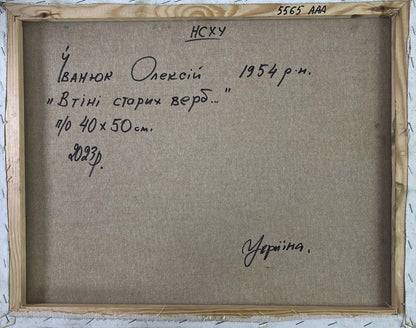 5565 AAA
НСХУ
Іванюк Олексій 1954 р.н.
„В тіні старих верб..."
п/о 40 x 50 см.
2023р.
Україна.